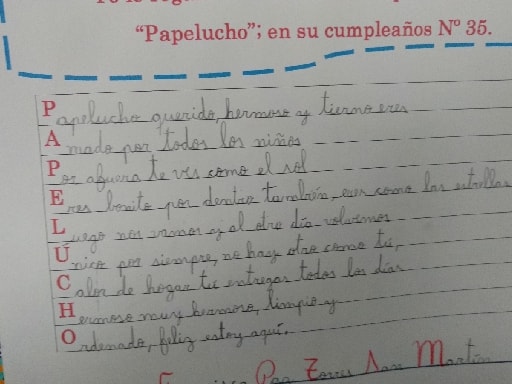 “Papelucho”; en su cumpleaños Nº 35.
Papelucho querido, hermoso y tierno eres
Amado por todos los niños
Por afuera te ves como el sol
Eres bonito por dentro también, eres como las estrellas
Luego nos vamos y al otro día volvemos
Único por siempre, no hay otro como tú,
Calor de hogar tú entregas todos los días
Hermoso muy hermoso, limpio y
Ordenado, feliz estoy aquí.
Paz Torres San Martín